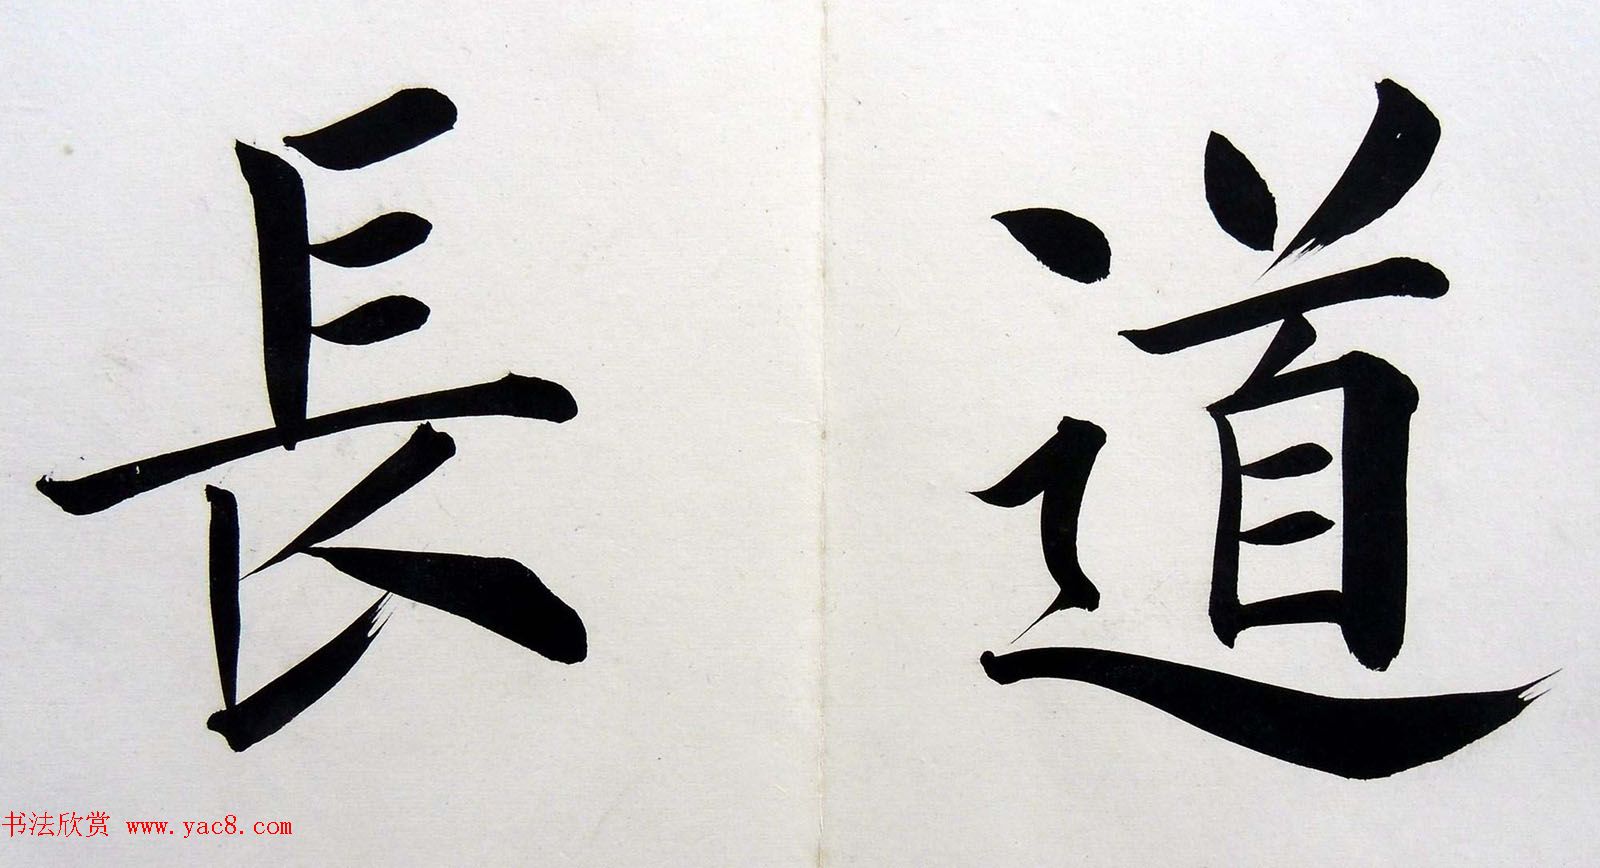 道長
书法欣赏 www.yac8.com